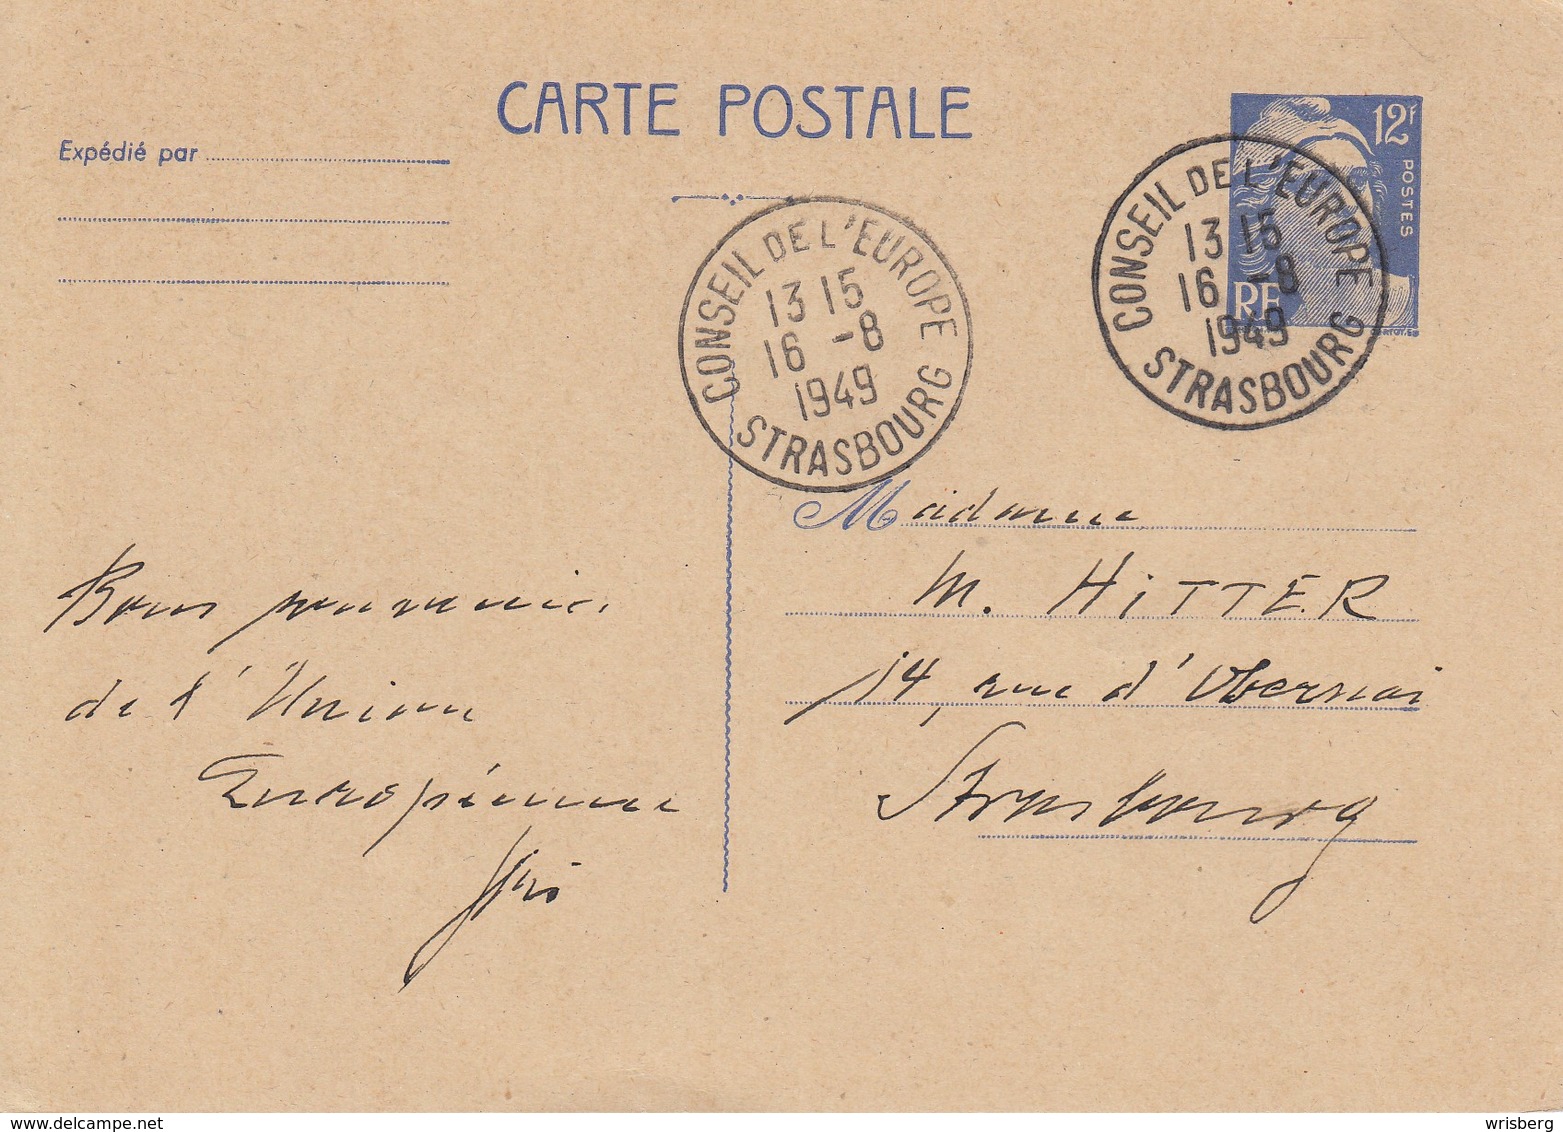 CARTE POSTALE
Expédié par
12F
POSTES
RF
CONSEIL DE L'EUROPE
13 15
16 -8
1949
STRASBOURG
CONSEIL DE L'EUROPE
13 15
16 -8
1949
STRASBOURG
Madame
M. HITTER
14, rue d'Obernai
Strasbourg
Bons souvenirs
de l'Union
Européenne
www.delcampe.net
wrisberg